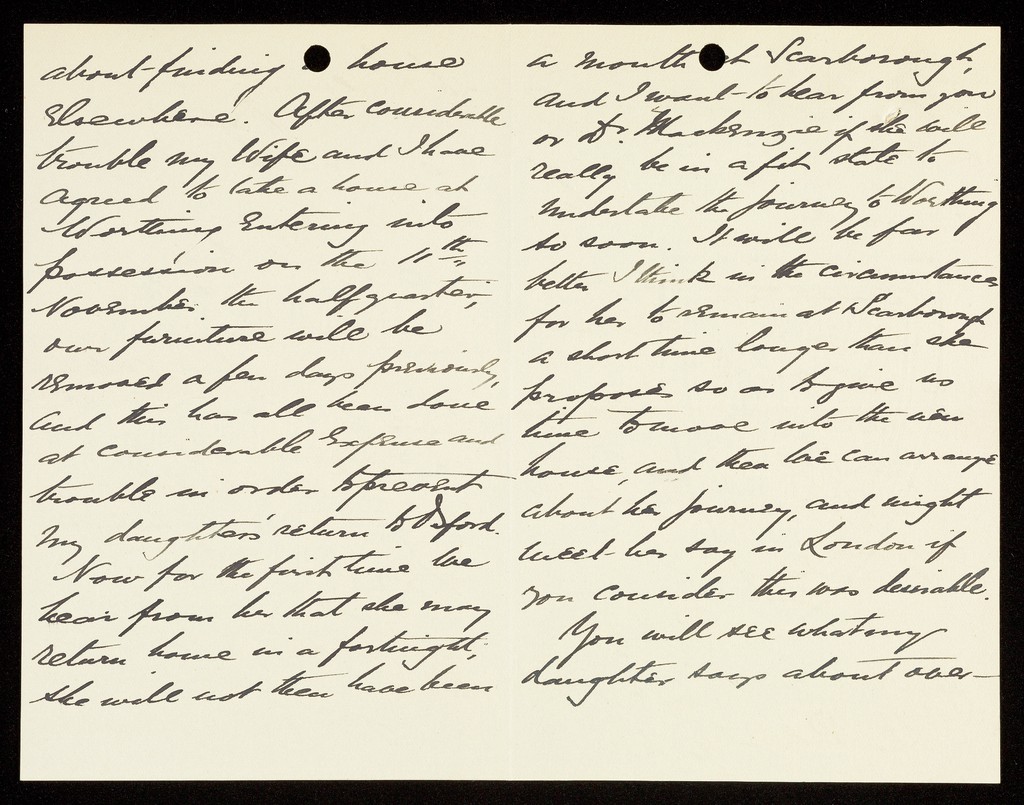 about finding a house
Elsewhere. After considerable
trouble my Wife and I have
agreed to take a house at
Worthing Entering into
possession on the 11th
November the half quarter,
our furniture will be
removed a few days previously,
and this has all been done
at considerable Expense and
trouble in order to prevent
my daughter's return to
Now for the first time we
hear from her that she may
return home in a fortnight;
she will not then have been
a month at Scarborough,
and I want to hear from you
or Dr. Mackenzie if she will
really be in a fit state to
undertake the journey to Worthing
so soon. It will be far
better I think in the circumstances
for her to remain at Scarborough
a short time longer than she
proposes so as to give us
time to move into the new
house, and then we can arrange
about her journey, and might
meet her say in London if
you consider this was desirable.
You will see what my
daughter says about over-